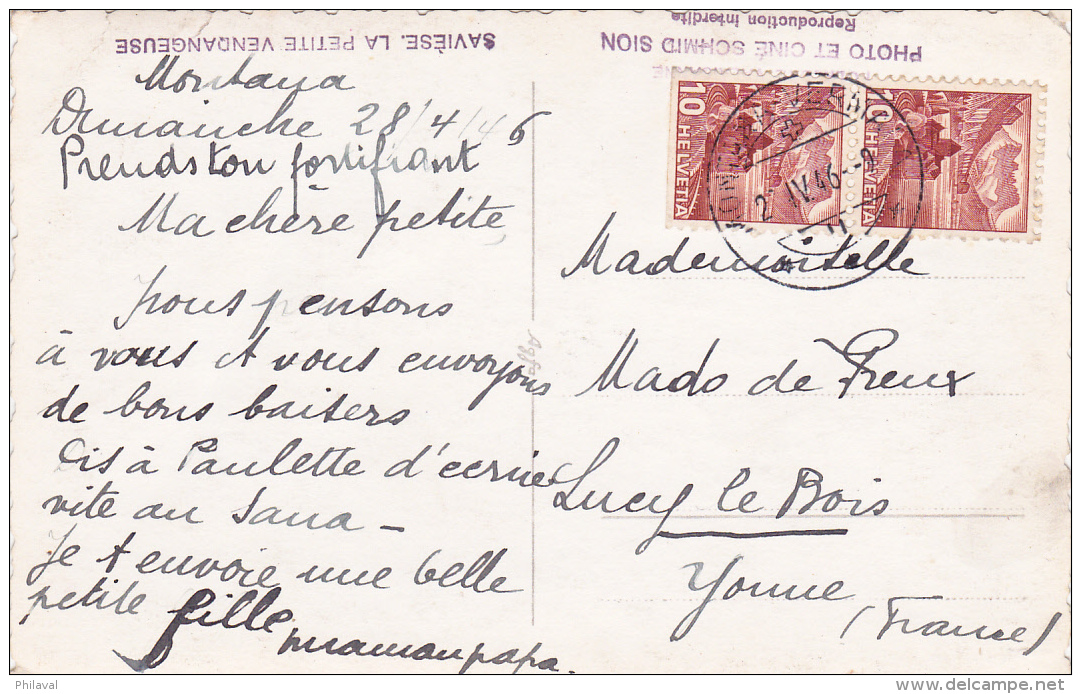 SAVIÈSE. LA PETITE VENDANGEUSE
PHOTO ET CINÉ SCHMID SION
Reproduction interdite
Montana
Dimanche 28/4/46
Prends ton fortifiant
Ma chère petite,
nous pensons
à vous et vous envoyons
de bons baisers
Dis à Paulette d'ecrire
vite au Sana -
Je t envoie une belle
petite fille
maman papa.
10 HELVETIA
10 HELVETIA
IV.46
Mademoiselle
Mado de Preux
Lucy le Bois
Yonne
(France)
Agfa
Philaval
www.delcampe.net